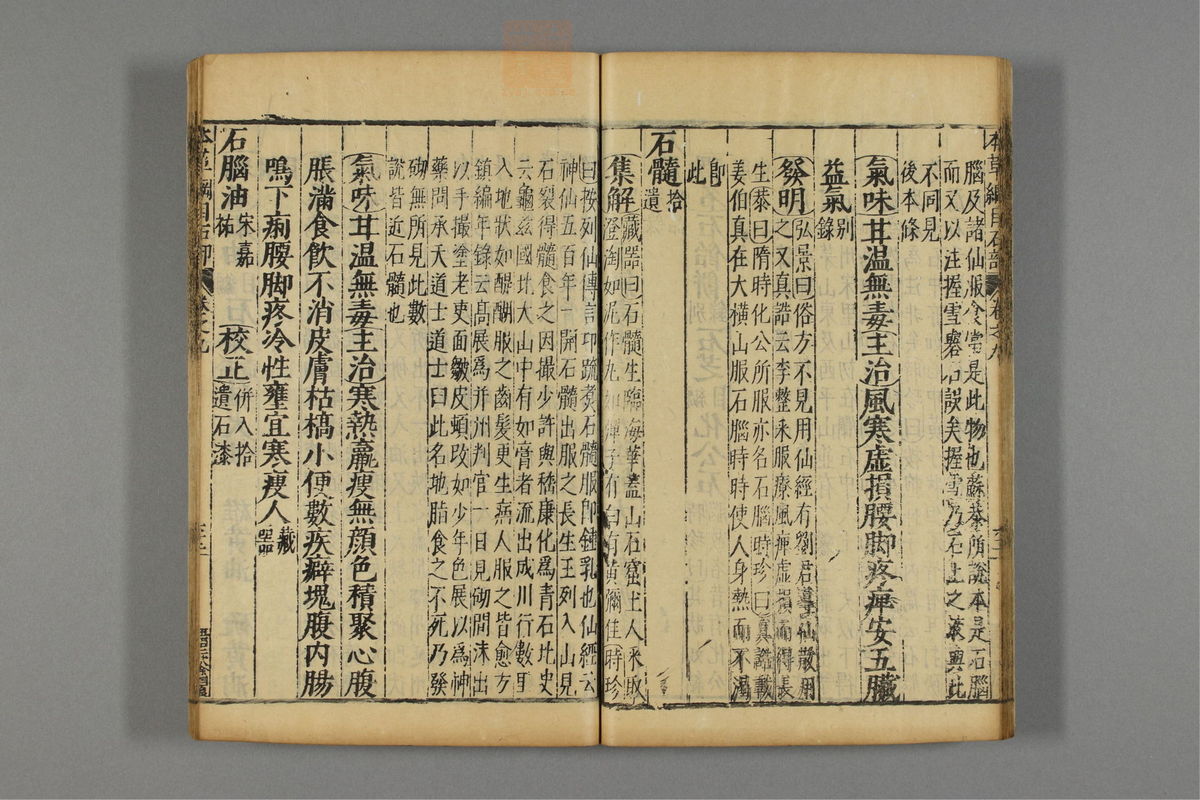 本草綱目石部 卷之九
腦及諸仙服食當是此物也蘇恭所說本是石腦
而又以注握雪礜石誤矣握雪乃石上之液與此
不同見
後本條
氣味甘温無毒主治風寒虛損腰脚疼痺安五臟
益氣别
錄
發明弘景曰俗方不見用仙經有劉君導仙散用
之又真誥云李整采服療風痺虛損而得長
生恭曰隋時化公所服亦名石腦時珍曰真誥載
姜伯真在大横山服石腦時時使人身熱而不渴
即
此
石髓拾
遺
集解藏器曰石髓生臨海華蓋山石窟土人采取
澄淘如泥作丸如彈子有白有黄彌佳時珍
曰按列仙傳言卭疏煮石髓服即鍾乳也仙經云
神仙五百年一開石髓出服之長生王列入山見
石裂得髓食之因撮少許與嵇康化爲青石北史
云龜兹國北大山中有如膏者流出成川行數里
入地狀如醍醐服之齒髮更生病人服之皆愈方
鎮編年錄云高展爲并州判官一日見砌間沫出
以手撮塗老吏面皺皮頓改如少年色展以爲神
藥問承天道士道士曰此名地脂食之不死乃發
砌無所見此數
說皆近石髓也
氣味甘温無毒主治寒熱羸瘦無顔色積聚心腹
脹滿食飲不消皮膚枯槁小便數疾癖塊腹内腸
鳴下痢腰脚疼冷性壅宜寒瘦人藏
器
石腦油宋嘉
祐 校正併入拾
遺石漆
本草綱目石部 卷之九